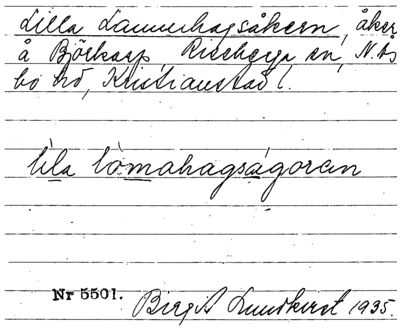 Lilla Lammhagsåkern, åker
å Björkarp, Riseberga sn, N. Ås
bo hd, Kristianstad l.
lìla lòmahagságoren
Nr 5501.
Birgit Lundkvist 1935.